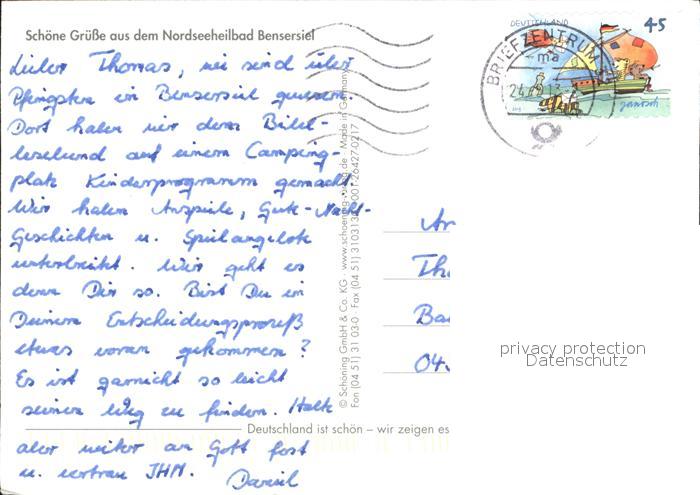 Schöne Grüße aus dem Nordseeheilbad Bensersiel
DEUTSCHLAND
45
BRIEFZENTRUM
ma
24.
janosch
Lieber Thomas, wir sind über
Pfingsten in Bensersiel gewesen.
Dort haben wir dem Bibel-
lesebund auf einem Camping-
platz Kinderprogramm gemacht.
Wir haben Anspiele, Gute-Nacht-
Geschichten u. Spielangebote
unterbreitet. Wie geht es
denn Dir so. Bist Du in
Deinem Entscheidungsprozeß
etwas voran gekommen?
Es ist garnicht so leicht
seinen Weg zu finden. Halte
aber weiter an Gott fest
u. vertrau IHM. Daniel
© Schöning GmbH & Co. KG · www.schoening-verlag.de · Made in Germany
Fon (04 51) 31 03-0 · Fax (04 51) 310313
001-26427-0217
An
Tho
Ba
04
Deutschland ist schön – wir zeigen es
privacy protection
Datenschutz